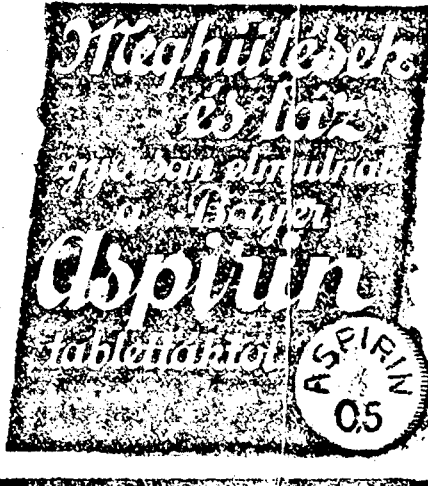 Meghűlések
és láz
gyorsan elmulnak
a „Bayer"
Aspirin
tablettáktól
ASPIRIN
0,5